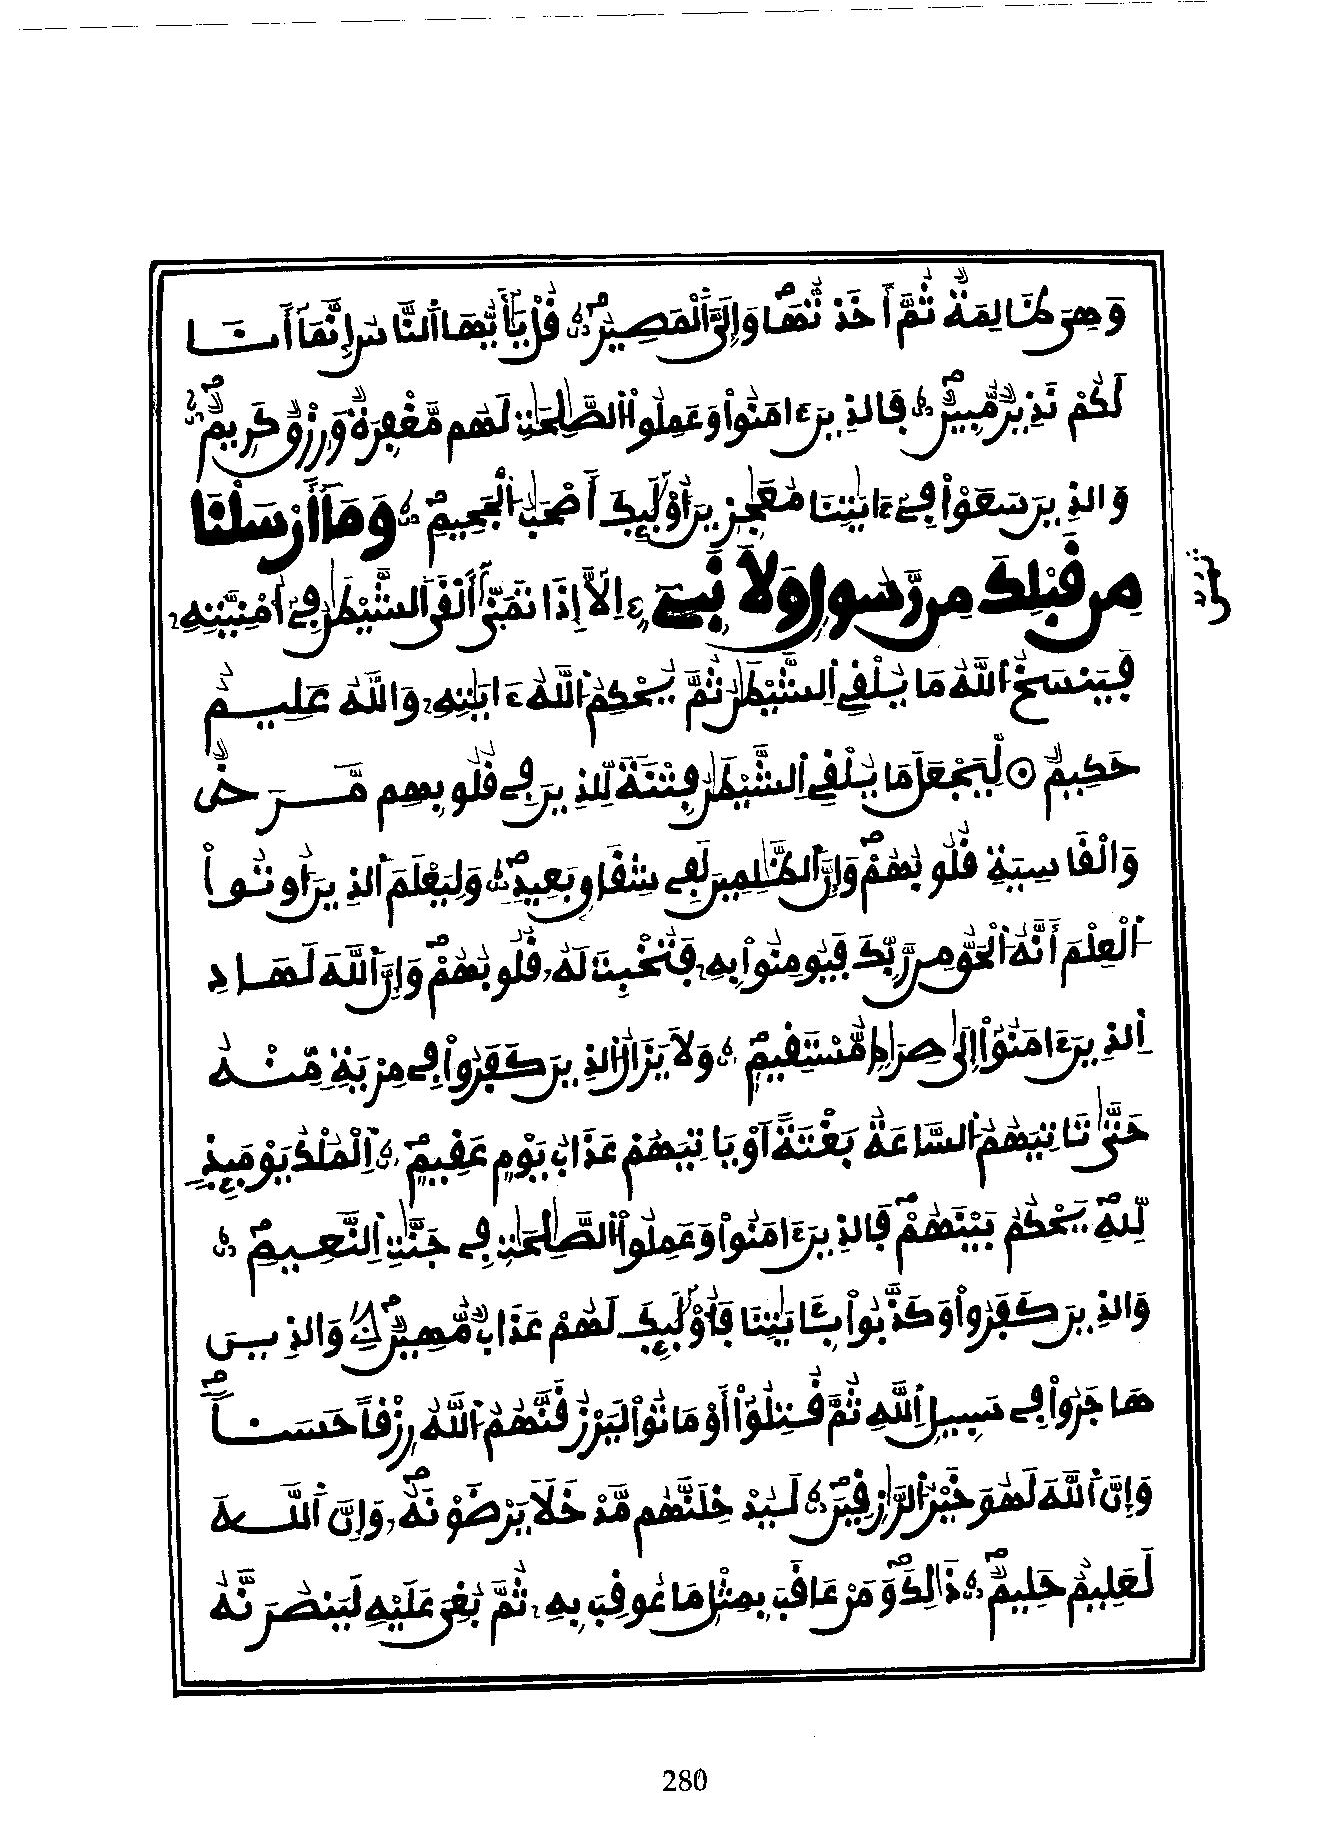 وَهِيَ ظَالِمَةٌ ثُمَّ أَخَذْتُهَا وَإِلَيَّ اَ۬لْمَصِيرُ قُلْ يَٰأَيُّهَا اَ۬لنَّاسُ إِنَّمَا أَنَا
لَكُمْ نَذِيرٌ مُّبِينٌ فَالذِينَ ءَامَنُواْ وَعَمِلُواْ اُ۬لصَّٰلِحَٰتِ لَهُم مَّغْفِرَةٌ وَرِزْقٌ كَرِيمٌ
وَالذِينَ سَعَوْاْ فِے ءَايَٰتِنَا مُعَٰجِزِينَ أُوْلَٰئِكَ أَصْحَٰبُ اُ۬لْجَحِيمِ وَمَا أَرْسَلْنَا
مِن قَبْلِكَ مِن رَّسُولٍ وَلَا نَبِےٓءٍ اِلَّا إِذَا تَمَنَّىٰ أَلْقَى اَ۬لشَّيْطَٰنُ فِے أُمْنِيَّتِهِۦ
فَيَنسَخُ اُ۬للَّهُ مَا يُلْقِے اِ۬لشَّيْطَٰنُ ثُمَّ يُحْكِمُ اُ۬للَّهُ ءَايَٰتِهِۦ وَاللَّهُ عَلِيمٌ
حَكِيمٌ لِّيَجْعَلَ مَا يُلْقِے اِ۬لشَّيْطَٰنُ فِتْنَةً لِّلذِينَ فِے قُلُوبِهِم مَّرَضٌ
وَالْقَاسِيَةِ قُلُوبُهُمْ وَإِنَّ اَ۬لظَّٰلِمِينَ لَفِے شِقَاقٍ بَعِيدٍ وَلِيَعْلَمَ اَ۬لذِينَ أُوتُواْ
اُ۬لْعِلْمَ أَنَّهُ اُ۬لْحَقُّ مِن رَّبِّكَ فَيُومِنُواْ بِهِۦ فَتُخْبِتَ لَهُۥ قُلُوبُهُمْ وَإِنَّ اَ۬للَّهَ لَهَادِ
اِ۬لذِينَ ءَامَنُواْ إِلَىٰ صِرَٰطٍ مُّسْتَقِيمٍ وَلَا يَزَالُ اُ۬لذِينَ كَفَرُواْ فِے مِرْيَةٍ مِّنْهُ
حَتَّىٰ تَاتِيَهُمُ اُ۬لسَّاعَةُ بَغْتَةً اَوْ يَاتِيَهُمْ عَذَابُ يَوْمٍ عَقِيمٍ اِ۬لْمُلْكُ يَوْمَئِذٍ
لِّلهِ يَحْكُمُ بَيْنَهُمْ فَالذِينَ ءَامَنُواْ وَعَمِلُواْ اُ۬لصَّٰلِحَٰتِ فِے جَنَّٰتِ اِ۬لنَّعِيمِ
وَالذِينَ كَفَرُواْ وَكَذَّبُواْ بِـَٔايَٰتِنَا فَأُوْلَٰئِكَ لَهُمْ عَذَابٌ مُّهِينٌ وَالذِينَ
هَاجَرُواْ فِے سَبِيلِ اِ۬للَّهِ ثُمَّ قُتِلُواْ أَوْ مَاتُواْ لَيَرْزُقَنَّهُمُ اُ۬للَّهُ رِزْقاً حَسَناً
وَإِنَّ اَ۬للَّهَ لَهُوَ خَيْرُ اُ۬لرَّٰزِقِينَ لَيُدْخِلَنَّهُم مَّدْخَلًا يَرْضَوْنَهُۥ وَإِنَّ اَ۬للَّهَ
لَعَلِيمٌ حَلِيمٌ ذَٰلِكَ وَمَنْ عَاقَبَ بِمِثْلِ مَا عُوقِبَ بِهِۦ ثُمَّ بُغِيَ عَلَيْهِ لَيَنصُرَنَّهُ
280